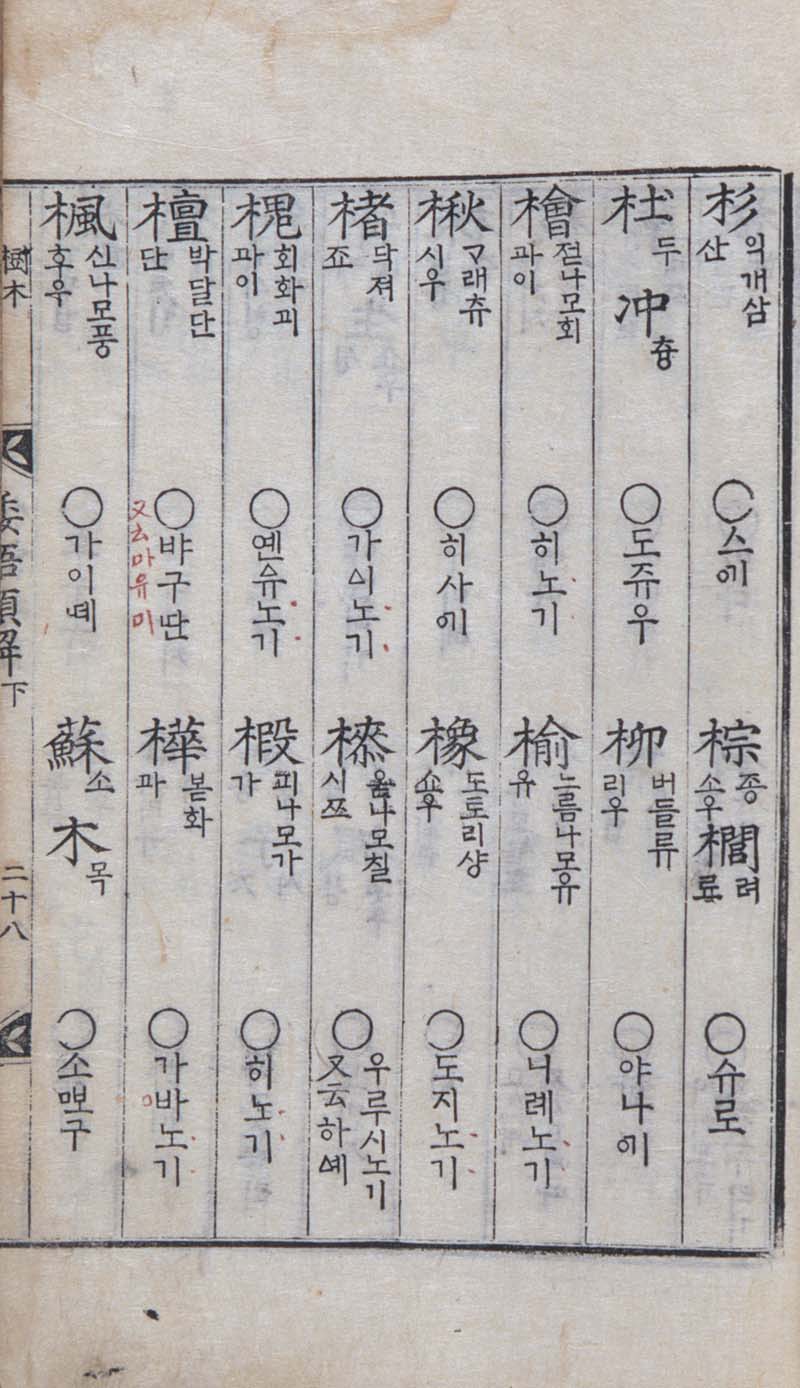 杉 익개삼 산 ○스ᅁᅵ 棕 종 소우 櫚 려 료 ○슈로
杜 두 冲 츙 ○도쥬우 柳 버들류 리우 ○야나ᅁᅵ
檜 젇나모회 파이 ○히노기 榆 느름나모유 유 ○니례노기
楸 ᄀᆞ래츄 시우 ○히사ᅁᅵ 橡 도토리샹 쇼우 ○도지노기
楮 닥져 죠 ○가ᅀᅵ노기 㯃 옫나모칠 시쯔 ○우루시노기 又云하
槐 회화괴 파이 ○옌ᅀᅲ노기 椵 피나모가 가 ○히노기
檀 박달단 단 ○뱌구ᄕᅡᆫ 又云마유미 樺 볻화 파 ○가바노기
楓 신나모풍 호우 ○가이ᄕᅦ 蘇 소 木 목 ○소ᄜᅩ구
樹木 倭語類解下 二十八